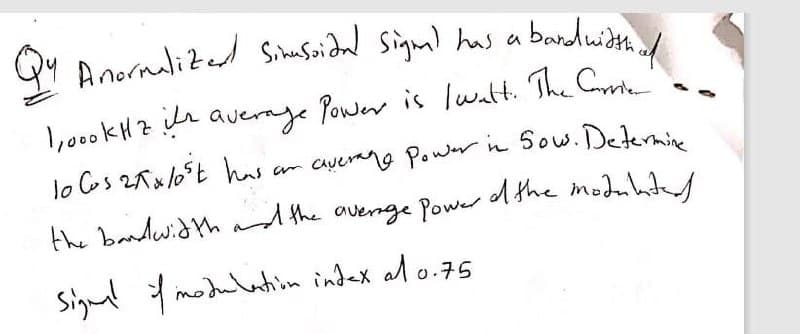 Q4 A normalized Sinusoidal signal has a bandwidth of
1,000kHz its average Power is 1watt. The Carrier
10 Cos 2π x 10⁵t has an average Power in 50w. Determine
the bandwidth and the average Power of the modulated
signal if modulation index of 0.75